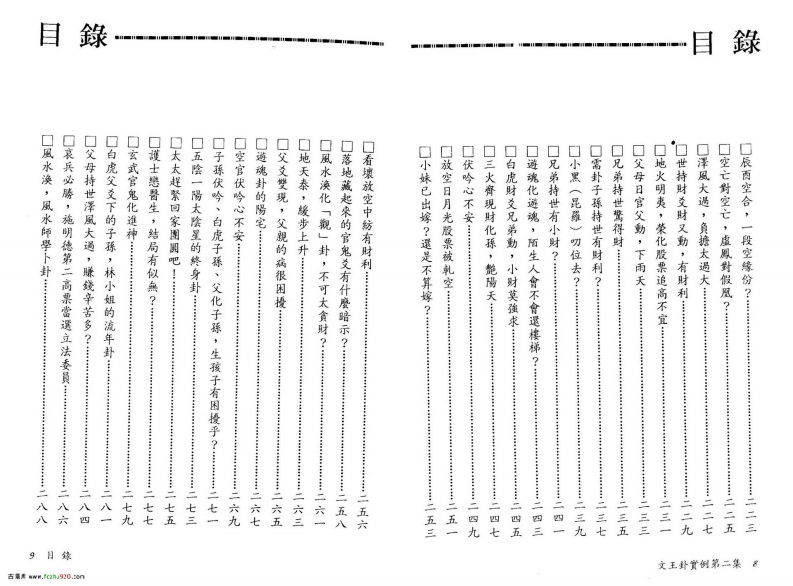 目錄
辰酉空合，一段空緣份？
空亡對空亡，虛鳳對假凰？
澤風大過，負擔太過大
世持財爻財又動，有財利
地火明夷，榮化股票追高不宜
父母日官父動，下雨天
兄弟持世驚得財
需卦子孫持世有財利？
小黑（昆羅）叨位去？
兄弟持世有小財？
遊魂化遊魂，陌生人會不會還樓梯？
白虎財爻兄弟動，小財莫強求
三火齊現財化孫，艷陽天
伏吟心不安……二四九
放空日月光股票被軋空……二五一
小妹已出嫁？還是不算嫁？……二五三
文王卦實例第二集 8
目錄
看壞放空中紡有財利……二五六
落地藏起來的官鬼爻有什麼暗示？……二五八
風水渙化「觀」卦，不可太貪財？……二六一
地天泰，緩步上升……二六三
父爻雙現，父親的病很困擾……二六五
遊魂卦的陽宅……二六七
空官伏吟心不安……二六九
子孫伏吟、白虎子孫、父化子孫，生孩子有困擾乎？……二七一
五陰一陽太陰星的終身卦……二七三
太太趕緊回家團圓吧！……二七五
護士戀醫生，結局有似無？……二七七
玄武官鬼化進神……二七九
白虎父爻下的子孫，林小姐的流年卦……二八一
父母持世澤風大過，賺錢辛苦多？……二八四
哀兵必勝，施明德第二高票當選立法委員……二八六
風水渙，風水師學卜卦……二八八
9 目錄
古易库 www.fczhu920.com